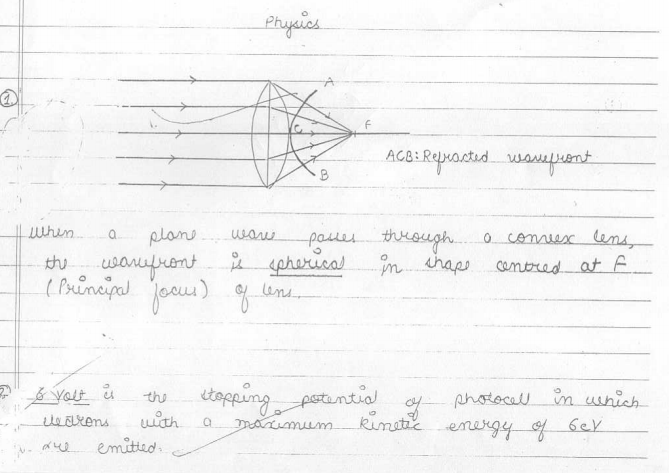 Physics
1.
A
C
F
B
ACB: Refracted wavefront
when a plane wave passes through a convex lens,
the wavefront is spherical in shape centred at F
(Principal focus) of lens.
2. 6 Volt is the stopping potential of photocell in which
electrons with a maximum kinetic energy of 6eV
are emitted.